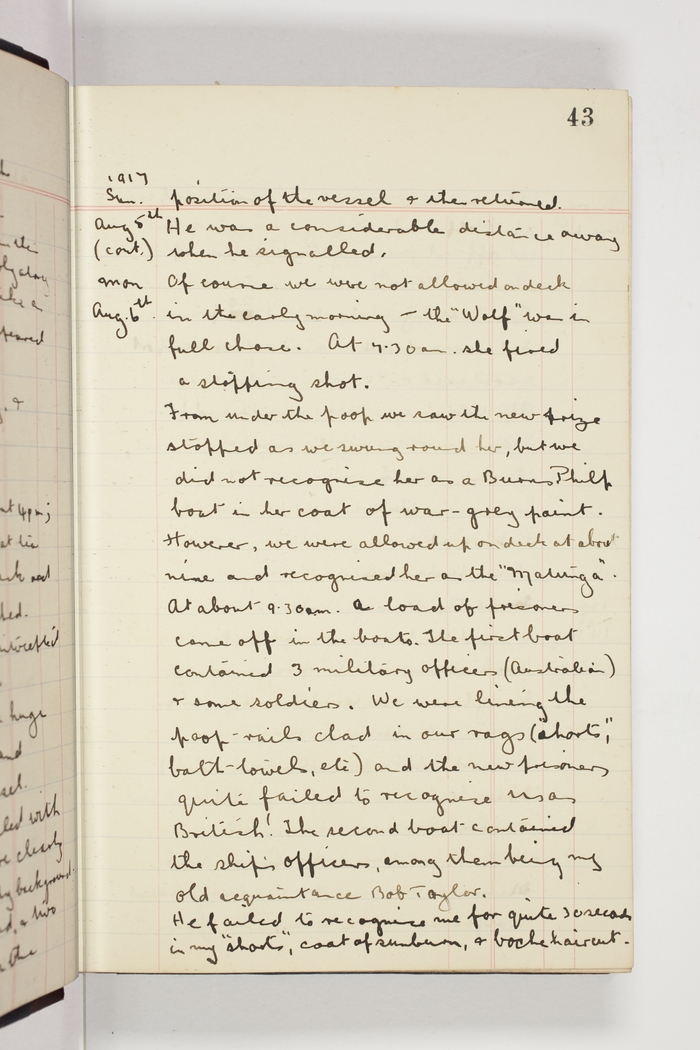 43
1917
Sun. position of the vessel & then returned.
Aug 5th He was a considerable distance away
(cont.) when he signalled.
Mon Of course we were not allowed on deck
Aug. 6th. in the early morning – the "Wolf" was in
full chase. At 7.30 am. she fired
a stopping shot.
From under the poop we saw the new prize
stopped as we swung round her, but we
did not recognise her as a Burns Philp
boat in her coat of war-grey paint.
However, we were allowed up on deck at about
nine and recognised her as the "Matunga".
At about 9.30am. a load of prisoners
came off in the boats. The first boat
contained 3 military officers (Australian)
& some soldiers. We were lining the
poop-rails clad in our rags ("shorts",
bath-towels, etc) and the new prisoners
quite failed to recognise us as
British! The second boat contained
the ship's officers, among them being my
old acquaintance Bob Taylor.
He failed to recognise me for quite 30 seconds
in my "shorts", coat of sunburn, & boche haircut.
in the
&
at 4pm;
huge
and
led with
closely
background.
& two
the